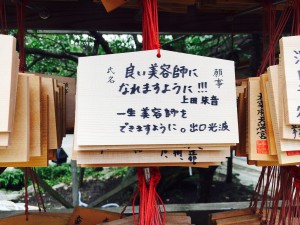 願事
氏名
良い美容師に
なれますように!!!
上田 朱音
一生 美容師を
できますように。出口光波